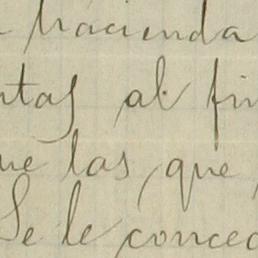 hacienda
ntas al fin
ue las, que
Se le conced